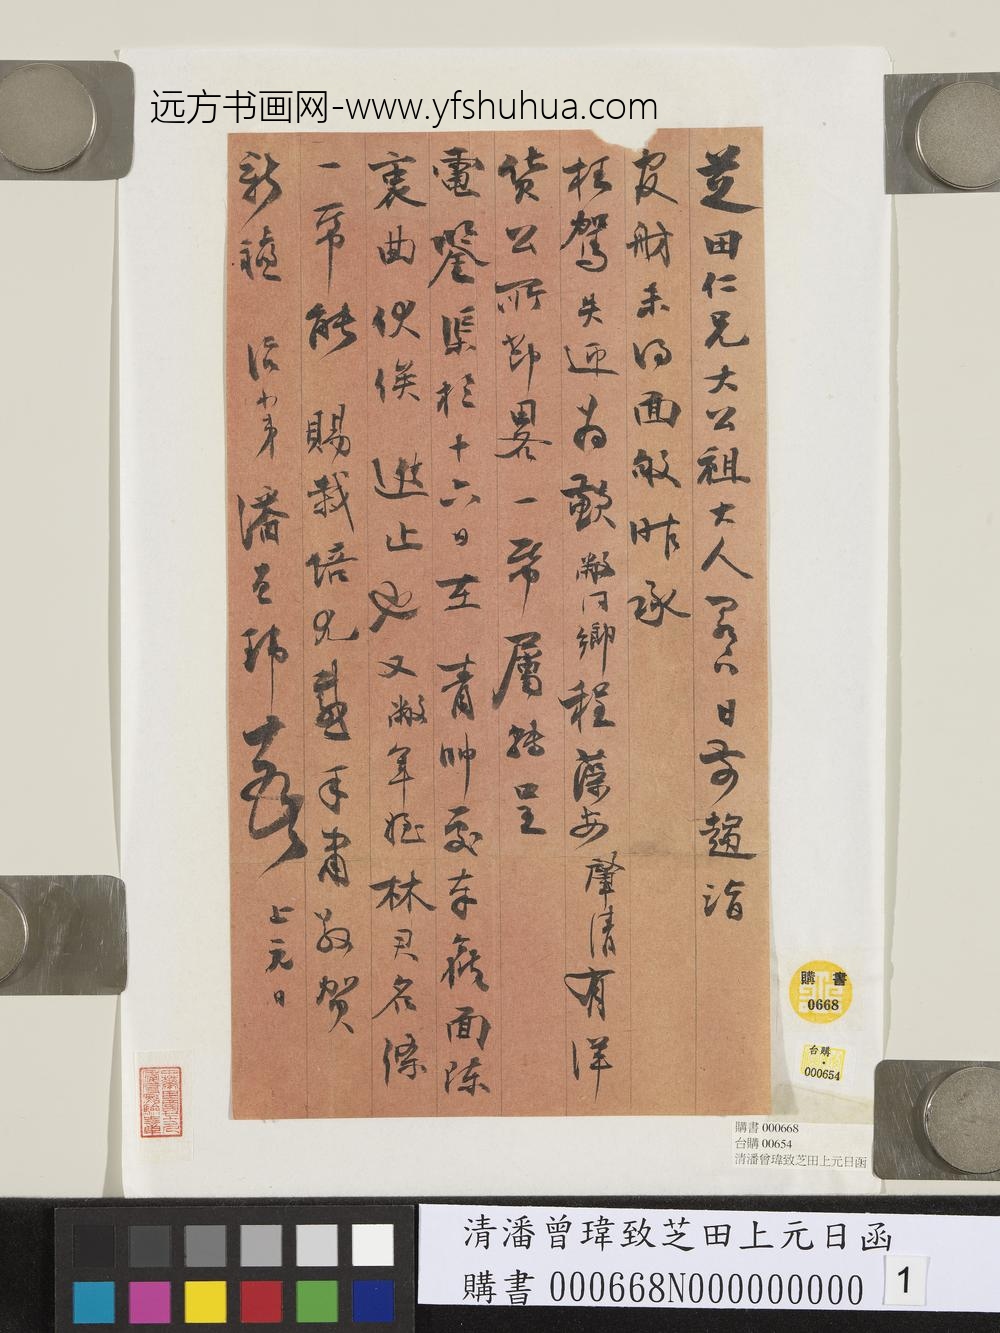 远方书画网-www.yfshuhua.com
芝田仁兄大公祖大人 日前趨詣
未得面 昨承
枉駕失迎為歉敝同鄉程藻安肇清有洋
貨公所節畧一帋屬轉呈
電鑒 於十六日在 青帥處奉 面陳
衷曲伏候 進止也又敝年姪林君名條
一帋能 賜栽培尤感手肅敬賀
新禧 治小弟潘曾瑋頓首 上元日
購書
0668
台購
000654
購書 000668
台購 00654
清潘曾瑋致芝田上元日函
清潘曾瑋致芝田上元日函
購書 000668N000000000
1